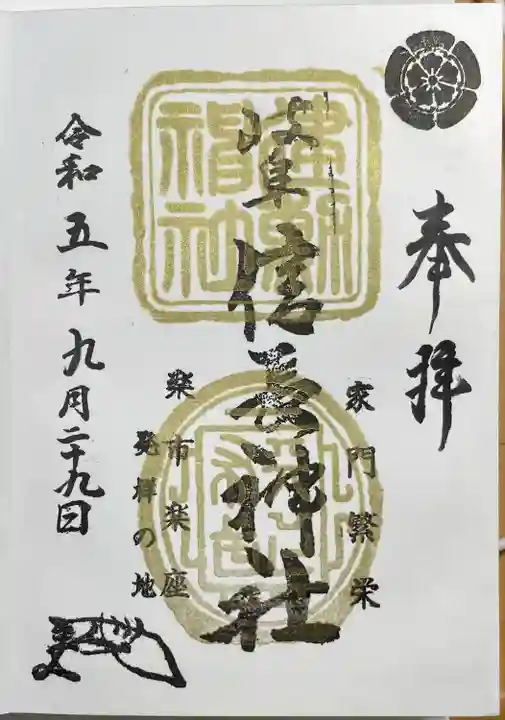 奉拝
家門繁栄
岐阜信長神社
建勲
神社
楽市楽座
発祥の地
令和五年九月二十九日